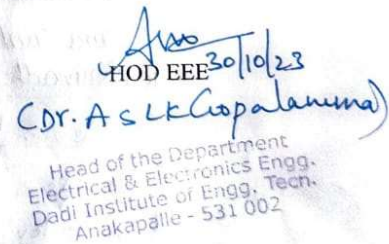 HOD EEE 30/10/23
(Dr. A S L K Gopalamma)
Head of the Department
Electrical & Electronics Engg.
Dadi Institute of Engg. Tech.
Anakapalle - 531 002